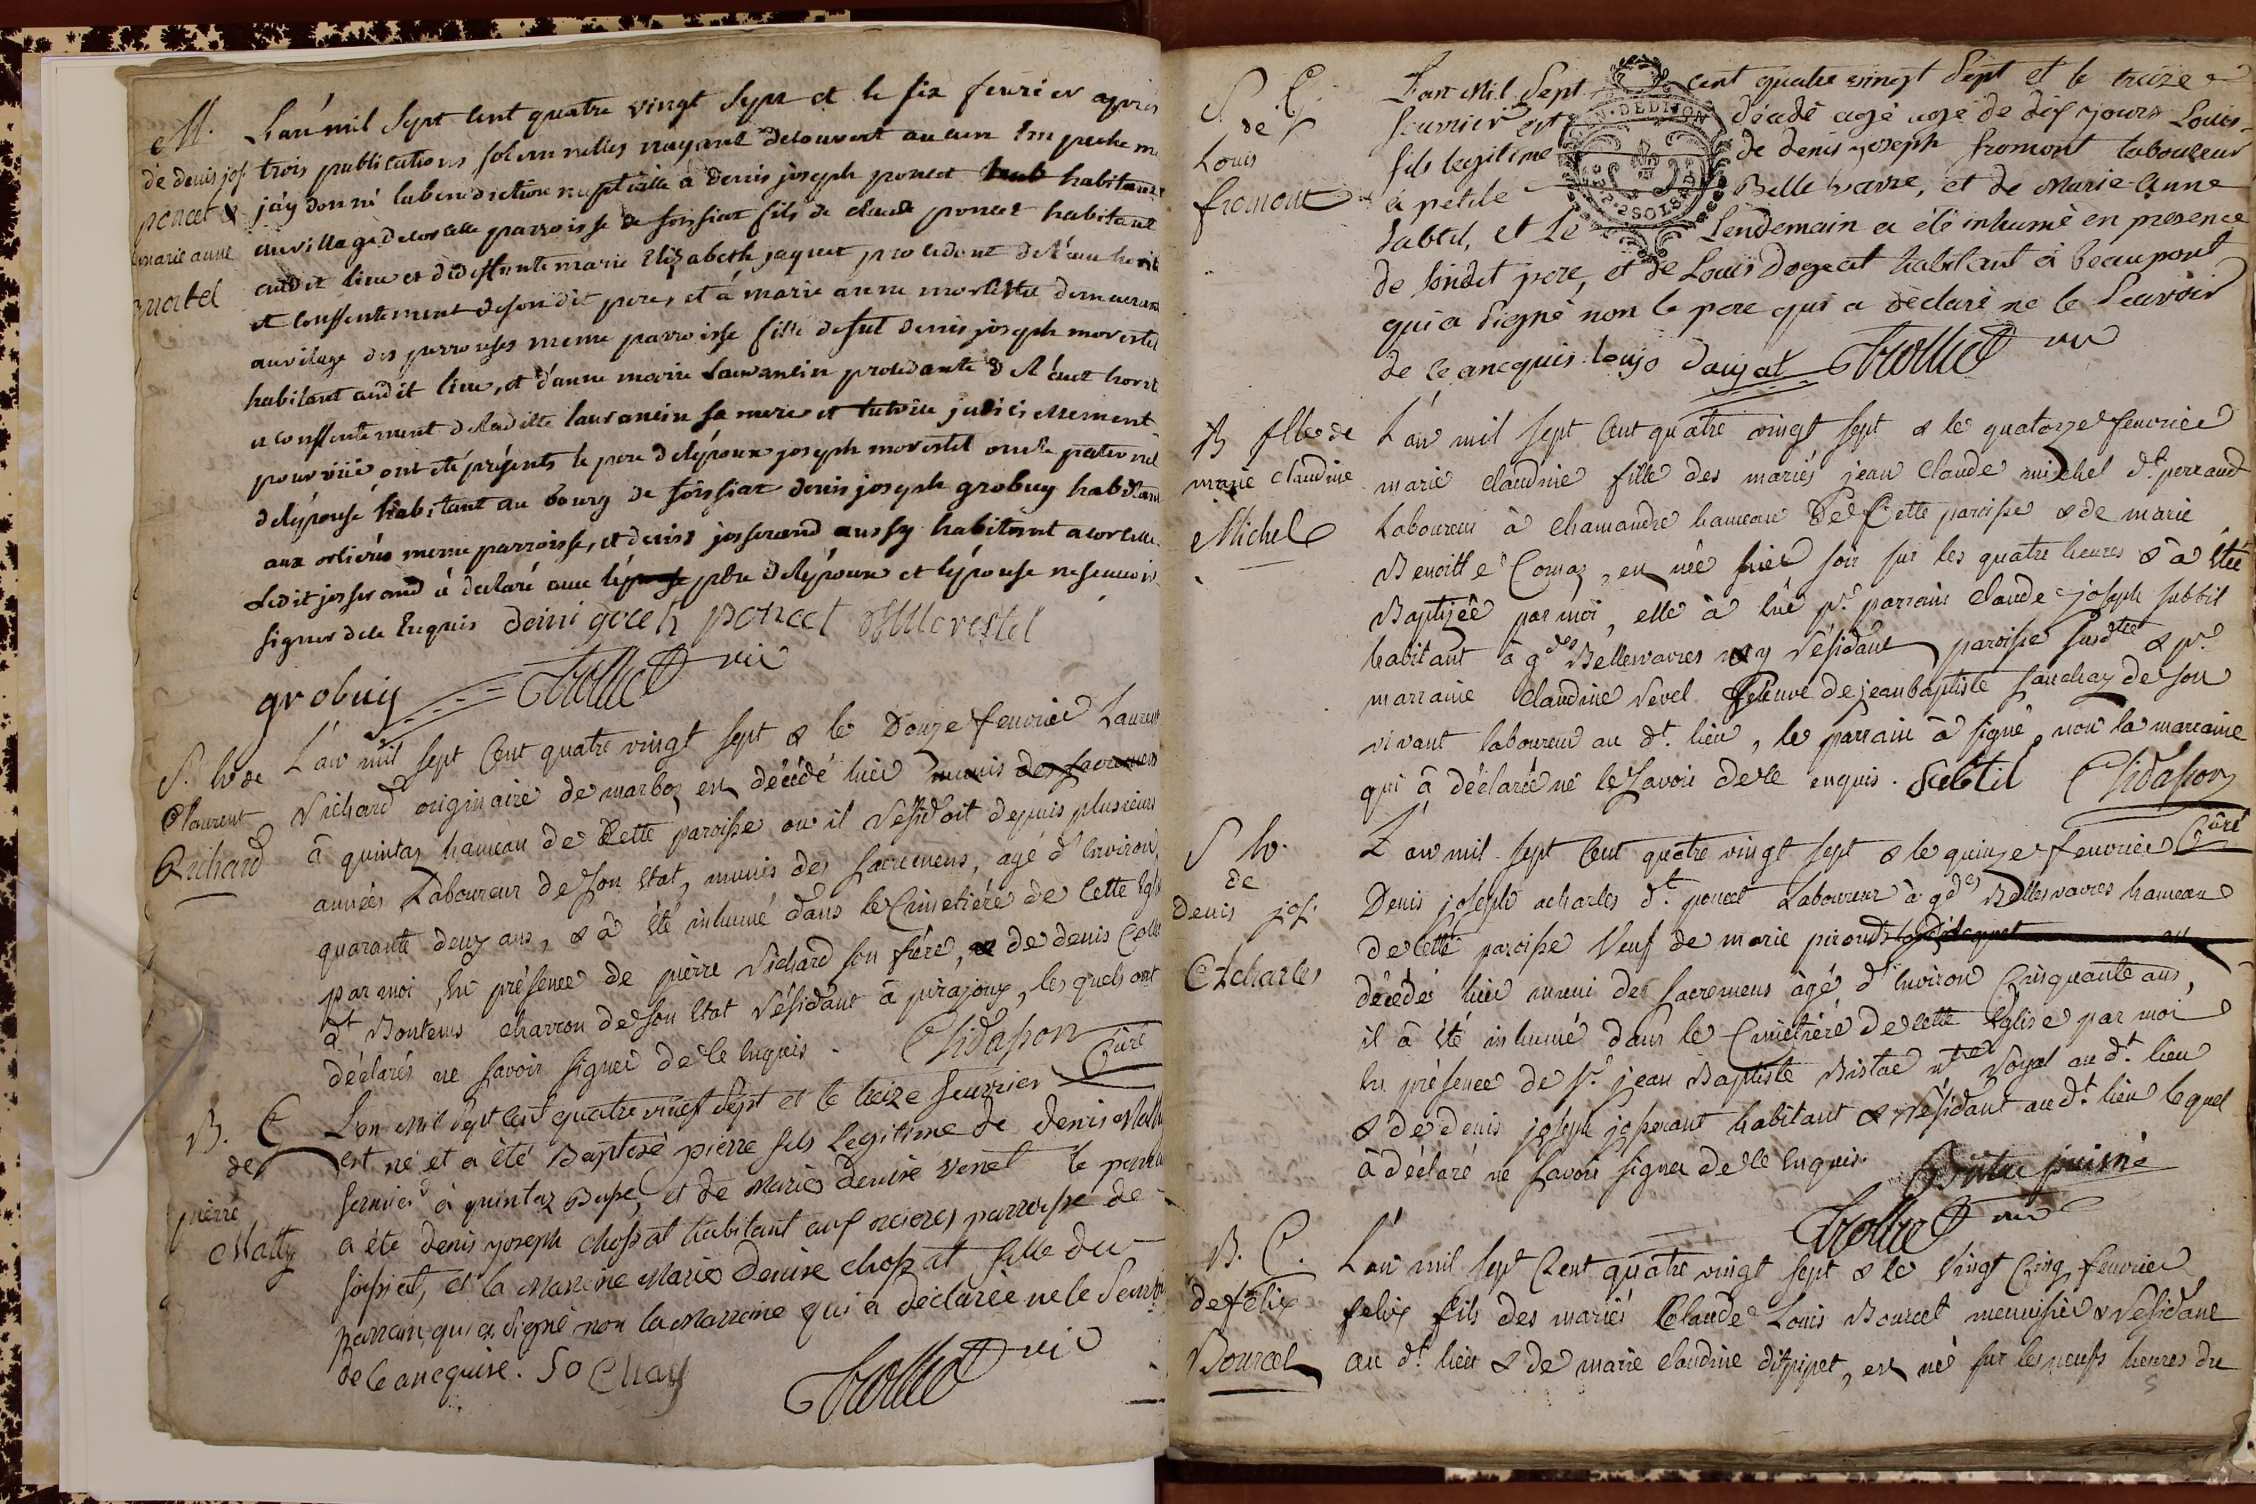 M.
de denis jos.
poncet &
marie anne
mortel
L'an mil sept cent quatre vingt sept et le six feurier apres
trois publications solemnelles nayant decouvert aucun Empecheme
j'ay donné la benediction nuptialle a denis joseph poncet habitant
au village de corcelle parroisse de foissiat fils de claude poncet habitant
audit lieu et de deffunte marie Elizabeth jaquet procedant de l'authorité
et consentement de son dit pere, et à marie anne morestel demeurant
au vilage des perrouses meme parroisse fille de fut denis joseph morestel
habitant audit lieu, et d'anne marie laurancin procedante de l'authorité
et consentement de laditte laurancin sa mere et tutrice judiciellement
pourvüe ont eté présents le pere de lépoux joseph morestel oncle paternel
de lépouse habitant au bourg de foissiat denis joseph grobuy habitant
aux orlieres meme parroisse, et denis josserand aussy habitant a corcelle
Ledit josserand à declaré avec le pere de lépoux et lépouse ne scauoir
signer de ce Enquis deni goceh poncet Morestel
grobuy Trolliet vic
S. h de
laurent
Richard
L'an mil sept Cent quatre vingt sept & le Douze feuvrier Laurent
Richard originaire de marboz est décédé hier munis des sacremens
à quintaz hameau de Cette paroisse ou il Résidoit depuis plusieurs
années Laboureur de son Etat, munis des sacremens, agé d'Environ
quarante deux ans, & à été inhumé dans le Cimetiére de Cette Eglise
par moi, En présence de pierre Richard son frére, de denis Collet
dt Bontems charron de son Etat Résidant à pirajoux, les quels ont
déclarés ne savoir signer de Ce Enquis. Chidasson
Curé
B. C
de
pierre
Matty
L'an Mil Sept cent quatre vingt Sept et le treize feuvrier
est né et a été Baptisé pierre fils Legitime de denis Matty
fermier à quintaz Basse, et de Marie denise Venet le parrain
a été denis yoseph chossat habitant aux orcieres parroisse de
foissiat, et la Marraine Marie Denise chossat fille du
Parrain qui a Signé non la Marraine qui a déclarée ne le Scavoir
de ce ancquise. Jo Chay
Trolliet vic
S. C.
de
Louis
fromont
L'an Mil Sept cent quatre vingt Sept et le treize
feuvrier est décédé agé agé de dix yours Louis
fils legitime de denis yoseph fromont laboureur
à petite Bellevavre, et de Marie Anne
Sabtil, et le Lendemain a été inhumé en presence
de Sondit pere, et de Louis Dogeat habitant à beaupont
qui a Signé non le pere qui a déclaré ne le Scavoir
de ce ancquis. louys daujat Trolliet vic
B fille de
marie Claudine
Michel
L'an mil sept Cent quatre vingt sept & le quatorze feuvrier
marie claudine fille des mariés jean Claude michel dt perraud
Laboureur à chamandre hameau de Cette paroisse & de marie
Benoitte Comaz, est née hier soir sur les quatre heures & à étée
Baptizée par moi, elle à Eue pr. parrain Claude joseph subtil
habitant à gdes Bellesvavres & y Résidant paroisse susdtte & pr.
marraine Claudine Revel Veuve de jean baptiste Sanchaz de son
vivant laboureur au dt. lieu, le parrain à signé, non la marraine
qui à déclarée ne le savoir de Ce enquis. Subtil Chidasson
Curé
S h.
de
denis jos.
Acharles
L'an mil sept Cent quatre vingt sept & le quinze feuvrier
Denis joseph acharles dt. poncet Laboureur à gdes Bellesvavres hameau
de Cette paroisse Veuf de marie piroud
décédé hier muni des sacremens agé d'Environ Cinquante ans,
il à été inhumé dans le Cimetiére de cette Eglise par moi
En présence de Sr. jean Baptiste Bistac ntre Royal au dt. lieu
& de denis joseph josserant habitant & Résidant au dt. lieu le quel
à déclaré ne savoir signer de Ce Enquis. puisné
Trolliet vic
B. C.
de felix
Bourcet
L'an mil sept Cent quatre vingt sept & le vingt Cinq feuvrier
felix fils des mariés Claude Louis Bourcet menuisier & Résidant
au dt. lieu & de marie claudine dizpipet, est né sur les neufs heures du
5